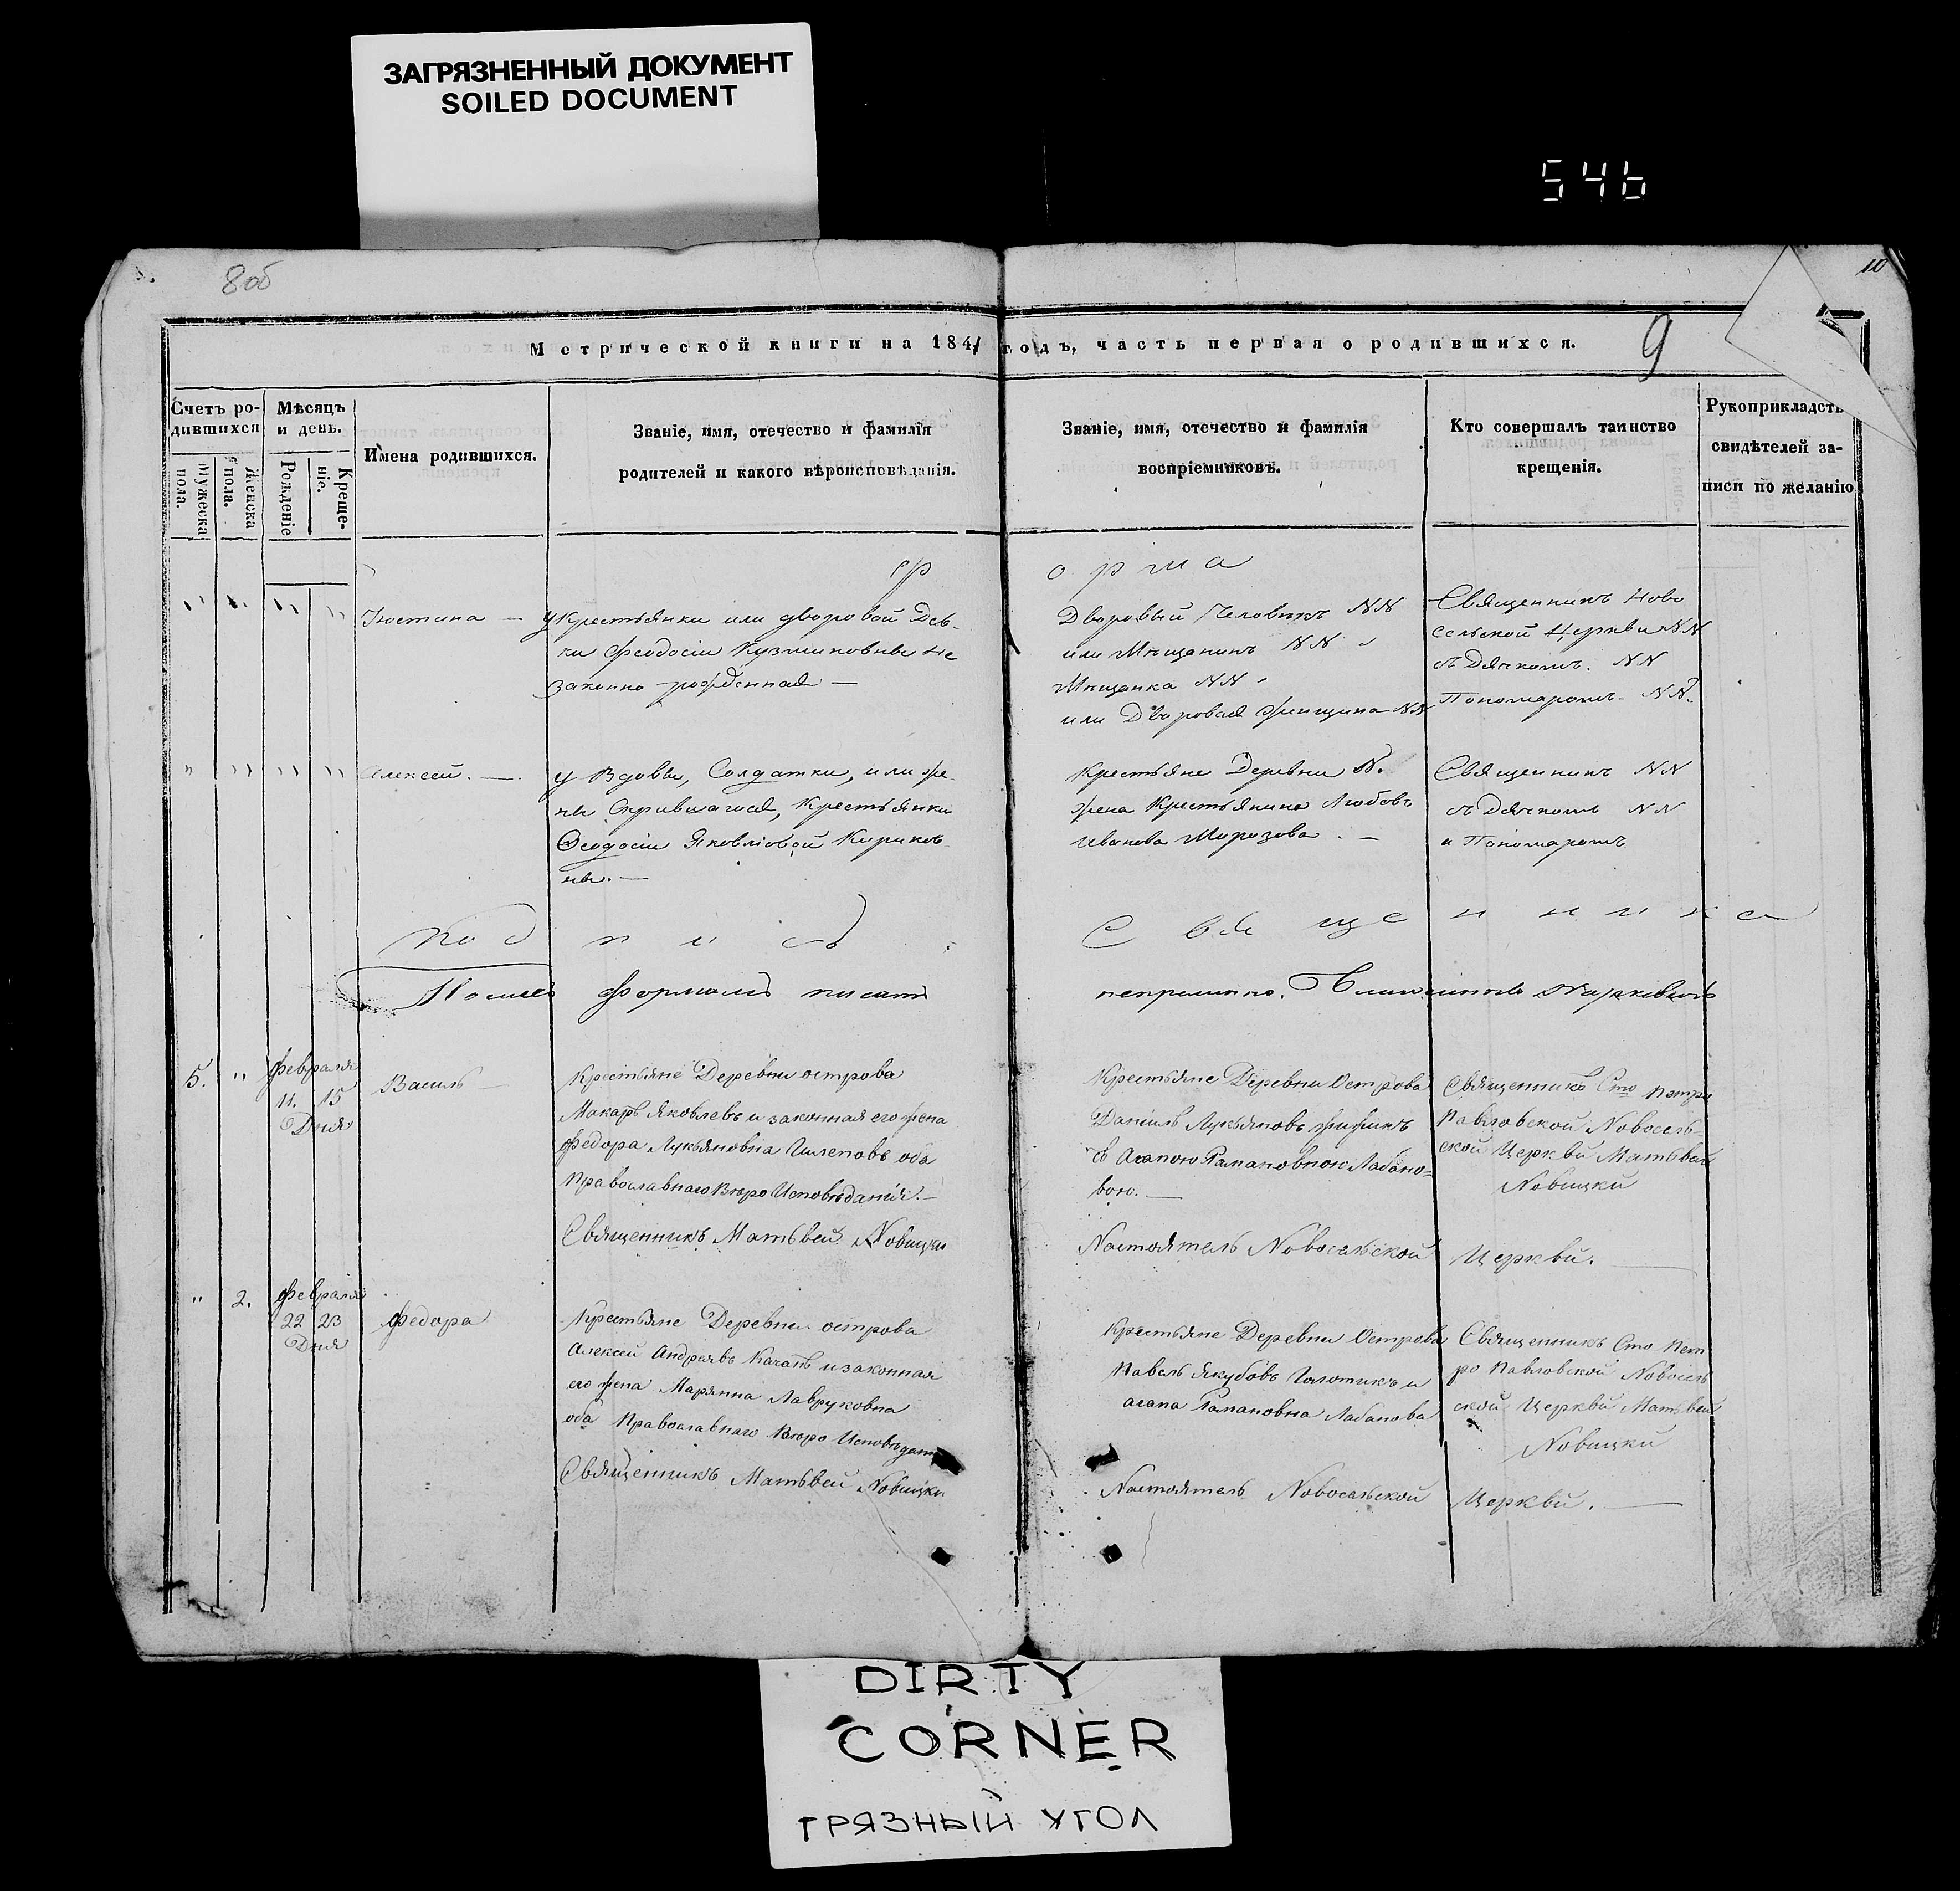 ЗАГРЯЗНЕННЫЙ ДОКУМЕНТ
SOILED DOCUMENT
546
8об
10
Метрической книги на 1841 годъ, часть первая о родившихся.
9
Счетъ ро-
дившихся
Мужеска пола.
Женска пола.
Мѣсяцъ
и день.
Рожденіе
Креще-
ніе.
Имена родившихся.
Званіе, имя, отечество и фамилія
родителей и какого вѣроисповѣданія.
Званіе, имя, отечество и фамилія
воспріемниковъ.
Кто совершалъ таинство
крещенія.
Рукоприкладств
свидѣтелей за-
писи по желанію
Ф о р м а
Іюстина — у Крестьянки или дворовой Дѣв-
ки Феодосіи Кузминовны не
законно рожденная —
Дворовый Человѣкъ NN
или Мѣщанинъ NN
Мѣщанка NN
или Дворовая женщина NN
Священникъ Ново
сельской Церкви NN
съ Дячкомъ. NN
Пономаромъ NN.
Алексей. — у Вдовы, Солдатки, или же-
ны Скрившагося, Крестьянки
Феодосіи Яковлевой Кириков-
ны. —
Крестьяне Деревни N.
жена Крестьянина Любовь
Иванова Морозова. —
Священникъ NN
съ Дячкомъ NN
и Пономаромъ
П о д п и с ь С в я щ е н н и к а
формамъ писать
непремѣнно.
5. " февраля
11. 15
Дня
Василь —
Крестьяне Деревни острова
Макаръ Яковлевъ и законная его жена
Федора Лукьяновна оба
Православнаго Вѣро Исповѣданія. —
Священникъ Матьвей Новицки
Крестьяне Деревни Острова
Даніиль Лукьяновъ
съ Агапою Рамановною Лабано=
вою. —
Настоятель Новосельской Церквй.
Священникъ Сто Петро
Павловской Новосель
ской Церквй Матьвей
Новицкй
" 2. февраля
22 23
Дня
Федора
Крестьяне Деревни острова
Алексей Андреявъ Качанъ и законная
его жена Марянна Лавруковна
оба Православнаго Вѣро Исповѣдан
Священникъ Матьвей Новицки
Крестьяне Деревни Острова
Павель Якубовъ и
агапа Рамановна Лабанова
Настоятель Новосельской Церквй.
Священникъ Сто Пет
ро Павловской Новосель
ской Церквй Матьвей
Новицкй
DIRTY
CORNER
ГРЯЗНЫЙ УГОЛ